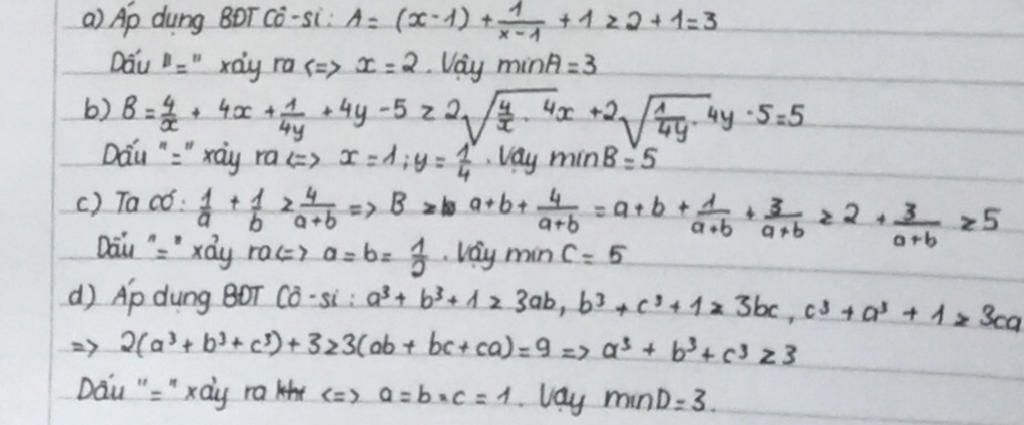 a) Áp dụng BĐT Cô-si: A = (x-1) + 1/(x-1) + 1 ≥ 2 + 1 = 3
Dấu "=" xảy ra <=> x = 2. Vậy minA = 3
b) B = 4/x + 4x + 1/4y + 4y - 5 ≥ 2√(4/x . 4x) + 2√(1/4y . 4y) - 5 = 5
Dấu "=" xảy ra <=> x = 1; y = 1/4. Vậy minB = 5
c) Ta có: 1/a + 1/b ≥ 4/(a+b) => B ≥ a+b + 4/(a+b) = a+b + 1/(a+b) + 3/(a+b) ≥ 2 + 3/(a+b) ≥ 5
Dấu "=" xảy ra <=> a = b = 1/2. Vậy min C = 5
d) Áp dụng BĐT Cô-si: a³ + b³ + 1 ≥ 3ab, b³ + c³ + 1 ≥ 3bc, c³ + a³ + 1 ≥ 3ca
=> 2(a³ + b³ + c³) + 3 ≥ 3(ab + bc + ca) = 9 => a³ + b³ + c³ ≥ 3
Dấu "=" xảy ra <=> a = b = c = 1. Vậy minD = 3.